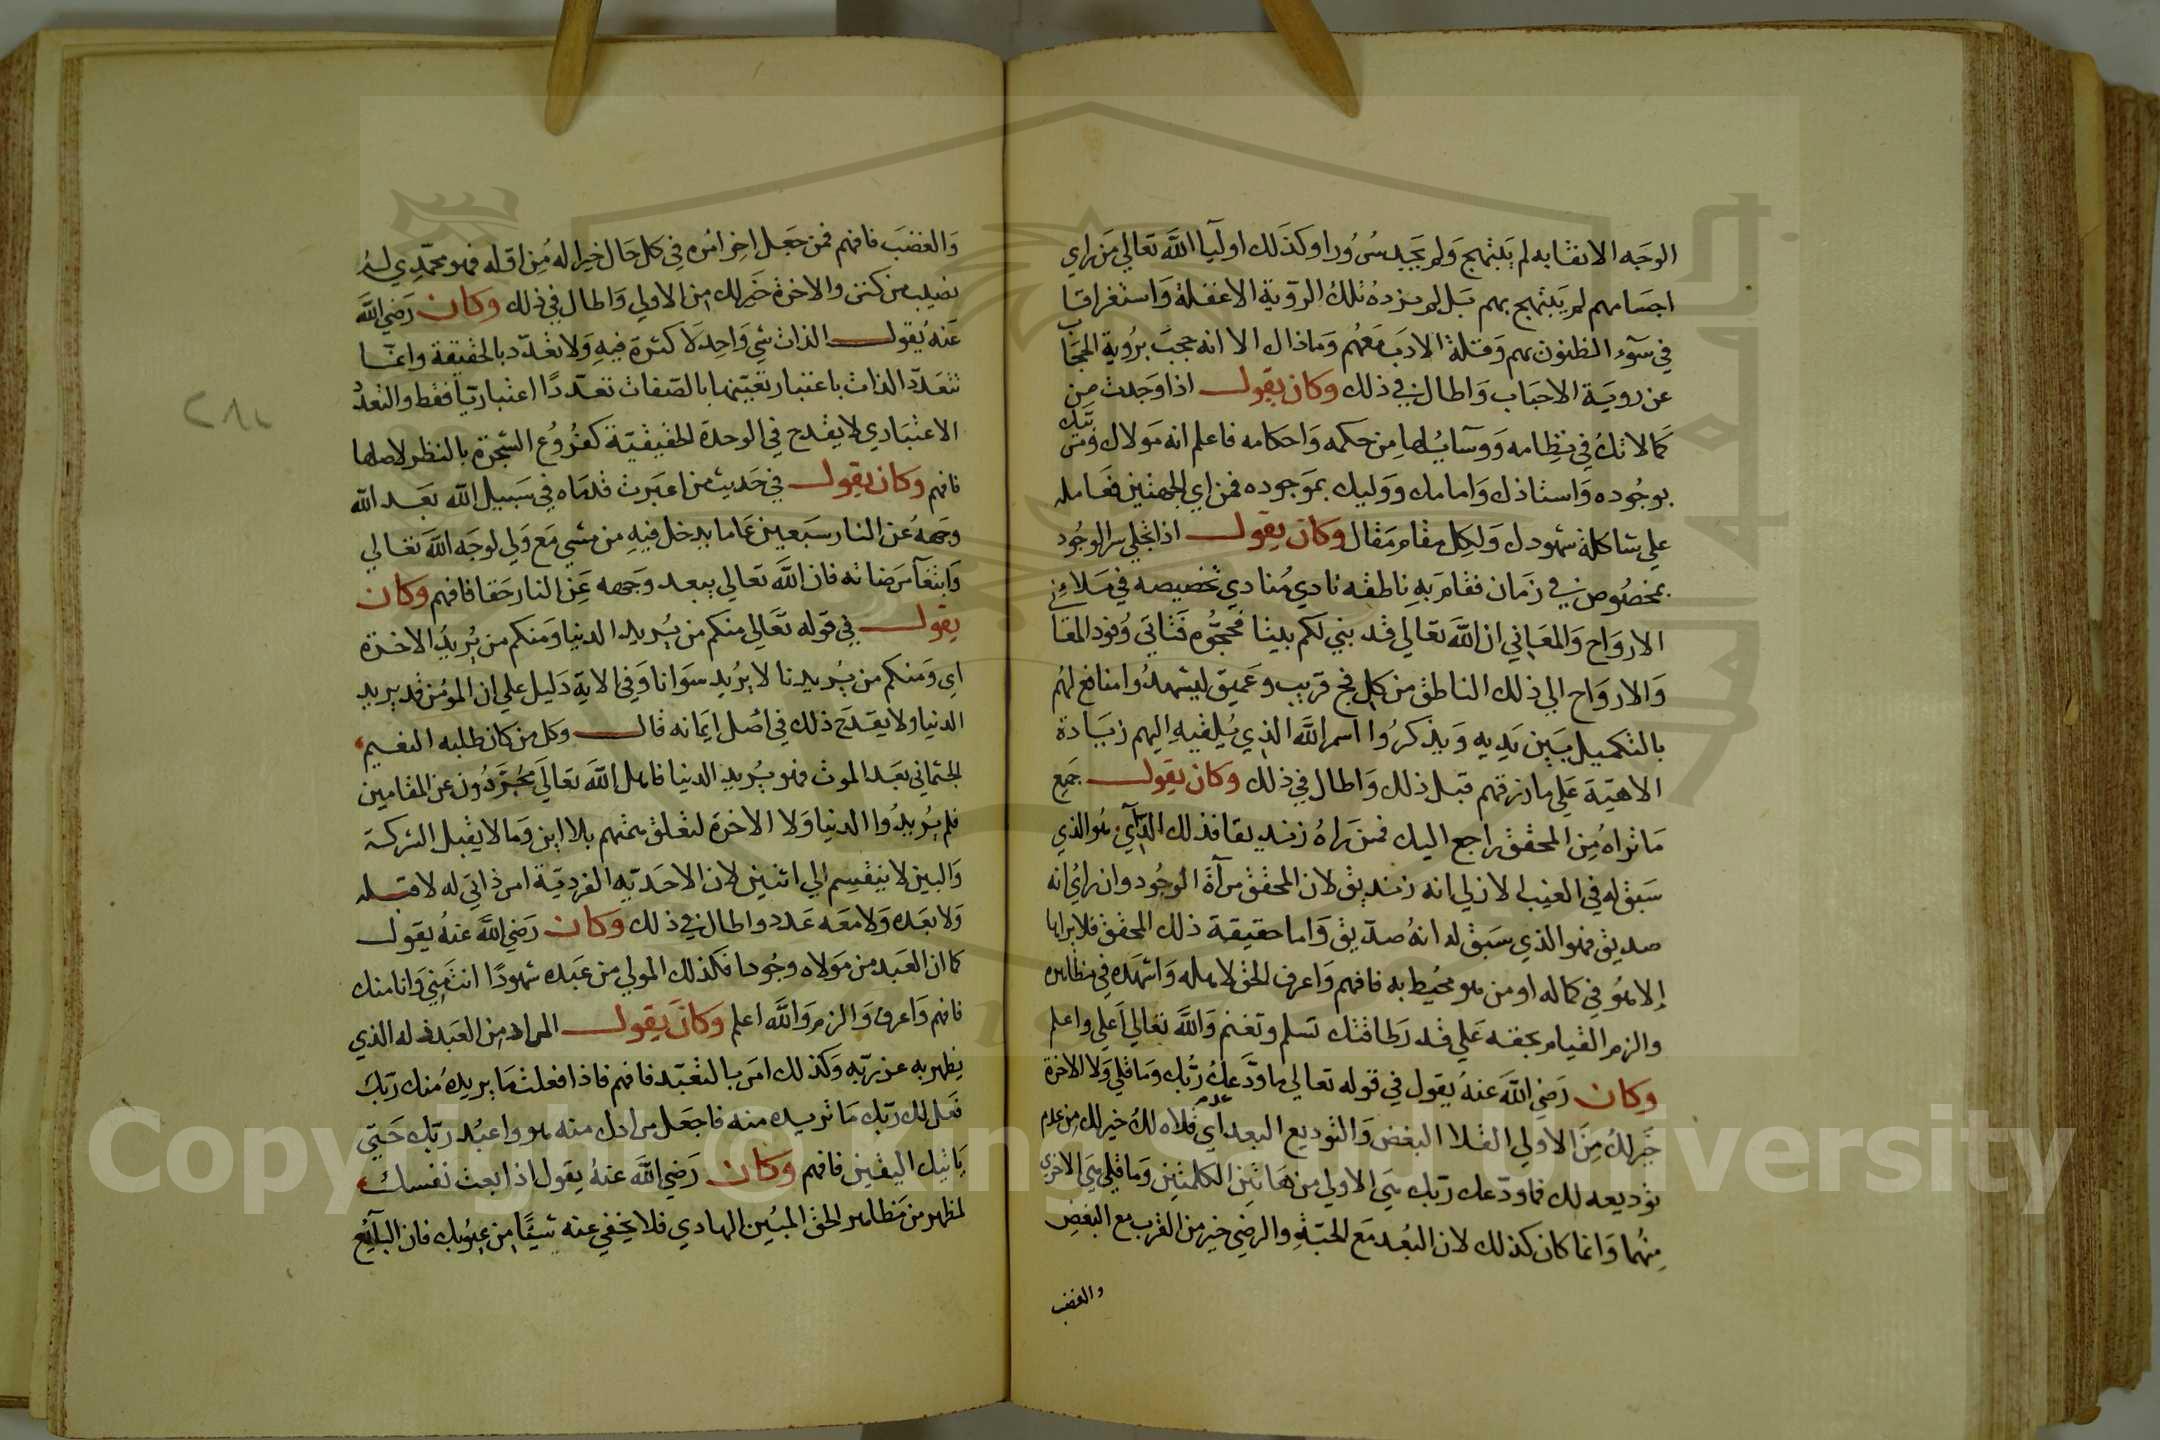 الوجه الا نقابه لم يبتهج ولم يجد سرورا وكذلك اوليا الله تعالى من راي
اجسامهم لم يبتهج بهم بل لم يزده تلك الروية الا غفلة واستغراقا
في سوء الظنون بهم وقلة الادب معهم وماذاك الا انه حجب بروية الحجاب
عن روية الاحباب واطال في ذلك وكان يقول اذا وجدت من
كمالاتك في نظامه ووسايلها من حكمه واحكامه فاعلم انه مولاك
بوجوده واستاذك وامامك ووليك بموجوده فمن اي الجهتين فعامله
علي شاكلة شهودك ولكل مقام مقال وكان يقول اذا تجلي سر الوجود
بمخصوص في زمان فقام به ناطقه نادي منادي تخصيصه في ملاء
الارواح والمعاني ان الله تعالى قد بني لكم بيتا فحجوه فتاتي وفود
والارواح الي ذلك الناطق من كل فج قريب وعميق ليشهدوا منافع لهم
بالتكميل بين يديه ويذكروا اسم الله الذي يلقيه اليهم زيادة
الاهية علي ما رزقهم قبل ذلك واطال في ذلك وكان يقول جميع
ما تراه من المحقق راجع اليك فمن راه زنديقا فذلك الرآي هو الذي
سبق له في الغيب الازلي انه زنديق لان المحقق مرآة الوجود وان راي انه
صديق فهو الذي سبق له انه صديق واما حقيقة ذلك المحقق فلا يراها
الا هو في كماله او من هو محيط به فافهم واعرف الحق لاهله واشهده في مظاهره
والزم القيام بحقه علي قدر طاقتك تسلم وتغنم والله تعالى اعلي واعلم
وكان رضي الله عنه يقول في قوله تعالى ما ودعك ربك وما قلي ولا الاخرة
خير لك من الاولي القلا البغض والتوديع البعد اي عدم قلاه لك خير لك من عدم
توديعه لك فما ودعك ربك هي الاولي من هاتين الكلمتين وما قلي هي الاخري
منهما وانما كان كذلك لان البعد مع المحبة والرضي خير من القرب مع البغض
والغضب
والغضب فافهم فمن جعل اخر امره في كل حال خيرا له من اوله فهو محمدي له
نصيب من كنز والاخرة خير لك من الاولي واطال في ذلك وكان رضي الله
عنه يقول الذات شي واحد لا كثرة فيه ولا تعدد بالحقيقة وانما
تتعدد الذات باعتبار تعيتها بالصفات تعددا اعتباريا فقط والتعدد
الاعتباري لا يقدح في الوحدة الحقيقية كفروع الشجرة بالنظر لاصلها
فافهم وكان يقول في حديث من اغبرت قدماه في سبيل الله بعد الله
وجهه عن النار سبعين عاما يدخل فيه من مشي مع ولي لوجه الله تعالى
وابتغآ مرضاته فان الله تعالى يبعد وجهه عن النار حقا فافهم وكان
يقول في قوله تعالي منكم من يريد الدنيا ومنكم من يريد الاخرة
اي ومنكم من يريدنا لا يريد سوانا وفي الاية دليل علي ان المومن قد يريد
الدنيا ولا يقدح ذلك في اصل ايمانه قال وكل من كان طلبه النعيم
الجثماني بعد الموت فهو يريد الدنيا فاهل الله تعالى مجردون عن المقامين
فلم يريدوا الدنيا ولا الاخرة لتعلق همتهم بلا اين وما لا يقبل الشركة
والبين لا ينقسم الي اثنين لان الاحدية الفردية امر ذاتي له لا قبله
ولا بعده ولا معه عدد واطال في ذلك وكان رضي الله عنه يقول
كما ان العبد من مولاه وجودا فكذلك المولي من عبده شهودا انت مني وانا منك
فافهم واعرف والزم والله اعلم وكان يقول المراد من العبد فعله الذي
يظهر به عن ربه وكذلك امر بالتعبد فافهم فاذا فعلت ما يريده منك ربك
فعل لك ربك ما تريده منه فاجعل مرادك منه هو واعبد ربك حتي
ياتيك اليقين فافهم وكان رضي الله عنه يقول اذا بعت نفسك
لمظهر من مظاهر الحق المبين الهادي فلا يخفي عنه شيئا من عيوبك فان البايع